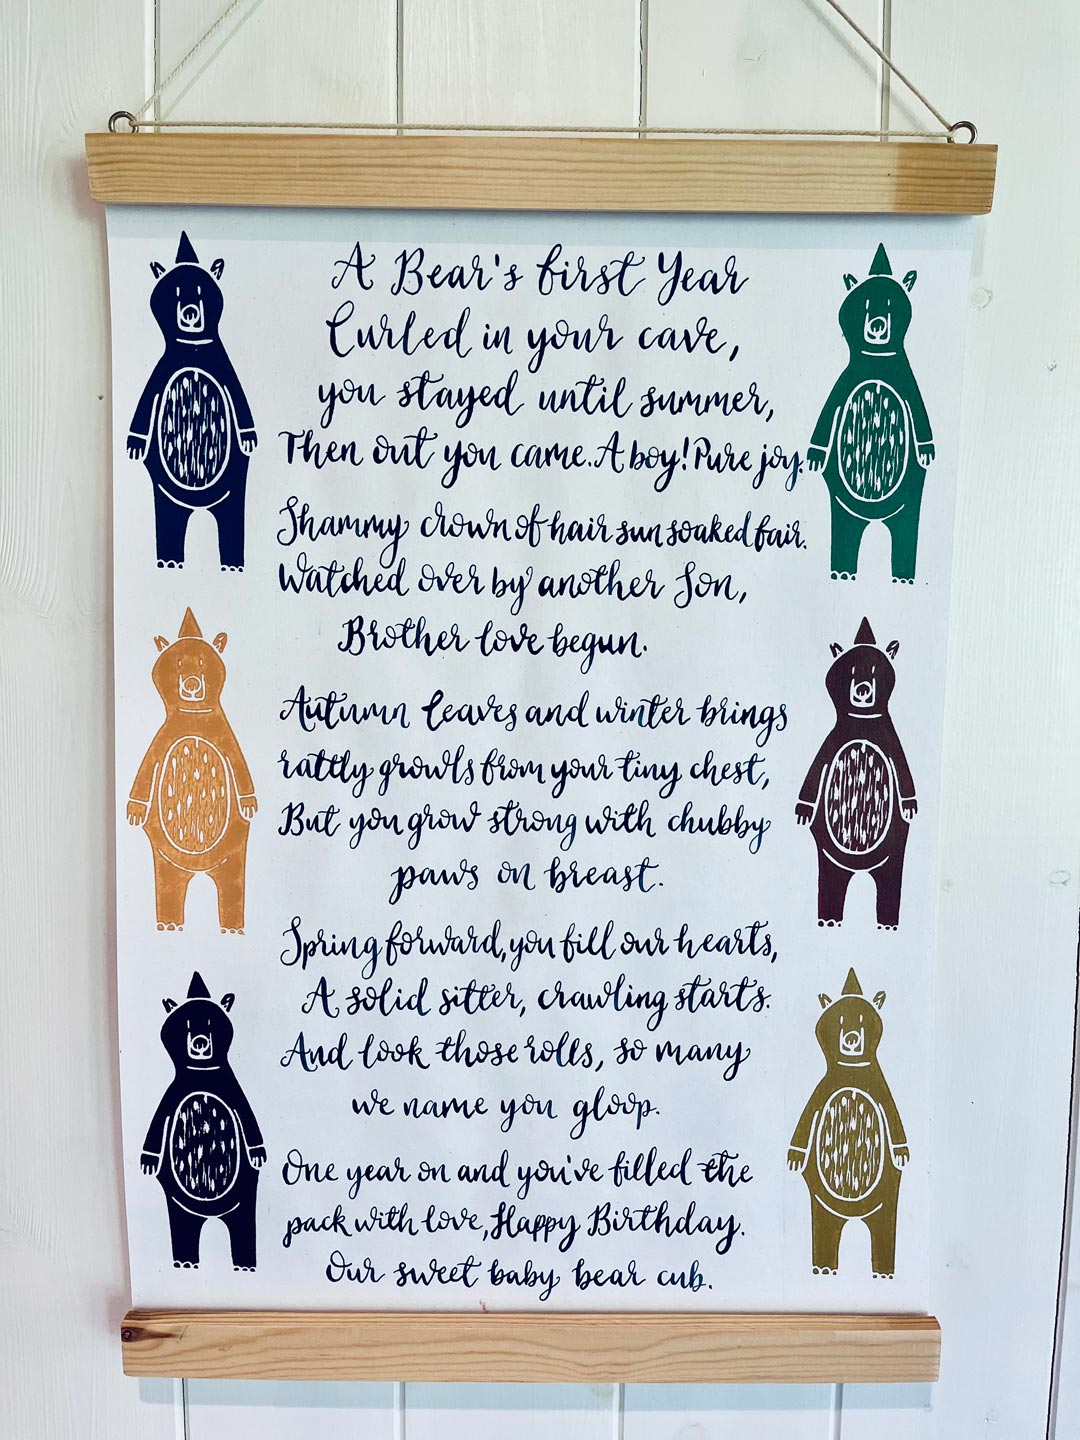 A Bear's first Year
Curled in your cave,
you stayed until summer,
Then out you came. A boy! Pure joy.
Shammy crown of hair sun soaked fair.
Watched over by another Son,
Brother love begun.
Autumn leaves and winter brings
rattly growls from your tiny chest,
But you grow strong with chubby
paws on breast.
Spring forward, you fill our hearts,
A solid sitter, crawling starts.
And look those rolls, so many
we name you gloop.
One year on and you've filled the
pack with love, Happy Birthday.
Our sweet baby bear cub.